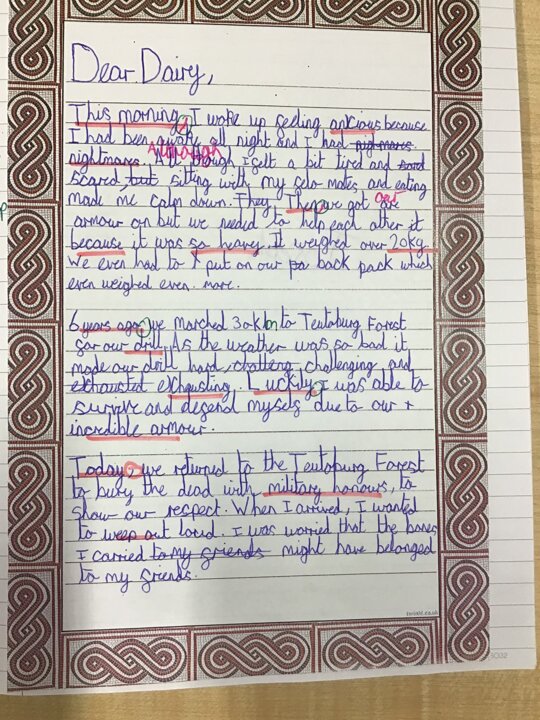 Dear Dairy,
This morning, I woke up feeling ancious because
I had been awake all night and I had nigh mares
nightmares. Although I felt a bit tired and sord
scared, but sitting with my felo mates and eating
made me calm down. They Then, we got our
armour on but we need to help each other it
because it was so heavy. It weighed over 20kg.
We even had to put on our pa back pack which
even weighed even more.
6 years ago, we marched 30km to Teutoburg Forest
for our drill. As the weather was so bad it
made our drill hard, challeng challenging and
exhausted exhausting. Luckily, I was able to
survive and defend myself due to our
incredible armour.
Today, we returned to the Teutoburg Forest
to bury the dead with military honours, to
show our respect. When I arrived, I wanted
to weep out loud. I was worried that the bones
I carried to my friends might have belonged
to my friends.
twinkl.co.uk